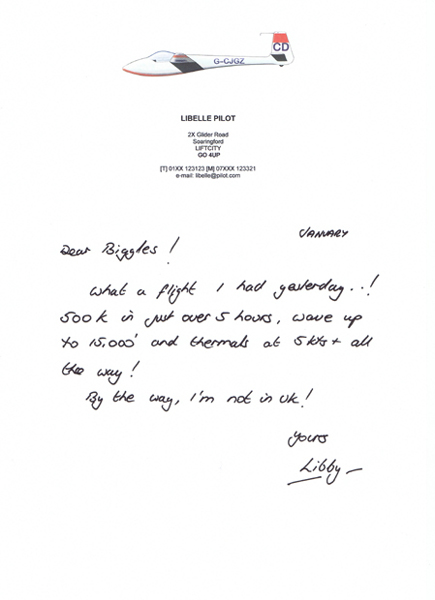 CD
G-CJGZ
LIBELLE PILOT
2X Glider Road
Soaringford
LIFTCITY
GO 4UP
[T] 01XX 123123 [M] 07XXX 123321
e-mail: libelle@pilot.com
JANUARY
Dear Biggles!
What a flight I had yesterday..!
500k in just over 5 hours, wave up
to 15,000' and thermals at 5kts+ all
the way!
By the way, I'm not in UK!
Yours
Libby